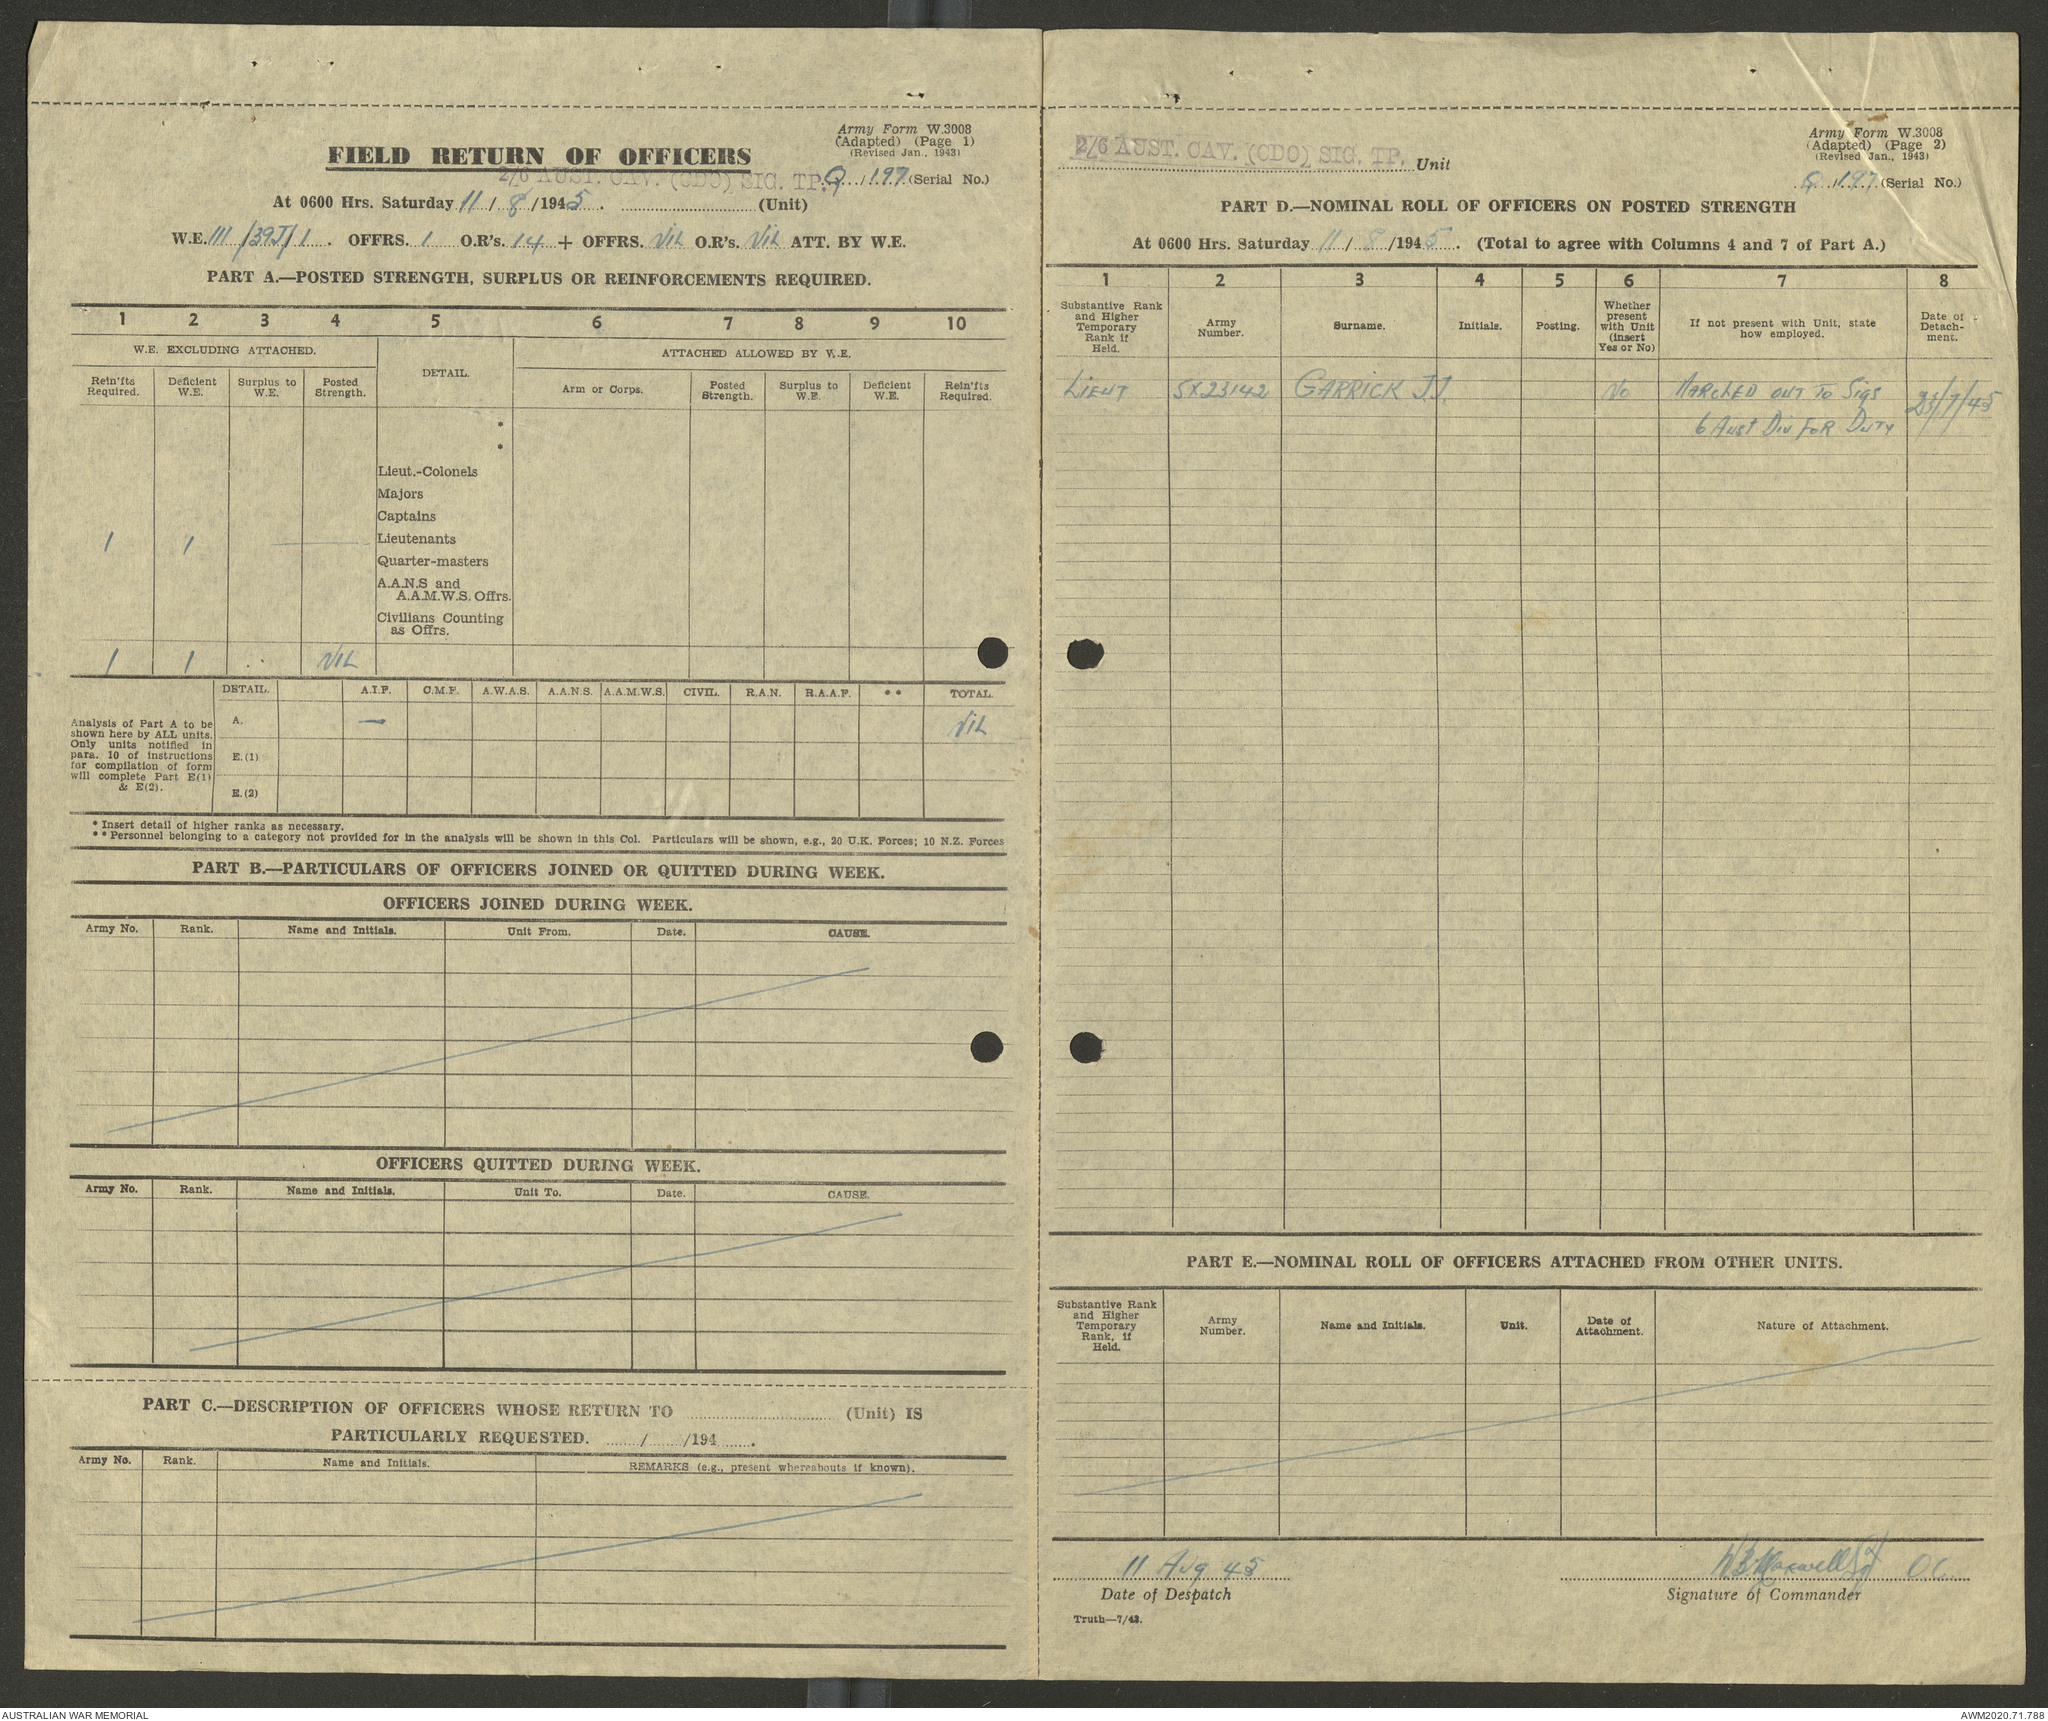 Army Form W.3008
(Adapted) (Page 1)
(Revised Jan., 1943)
FIELD RETURN OF OFFICERS
2/6 AUST. CAV. (CDO) SIG. TP. Q / 197 (Serial No.)
At 0600 Hrs. Saturday 11 / 8 /1945. (Unit)
W.E. III /39J/1. OFFRS. 1 O.R's. 14 + OFFRS. NIL O.R's. NIL ATT. BY W.E.
PART A.—POSTED STRENGTH, SURPLUS OR REINFORCEMENTS REQUIRED.
1 2 3 4 5 6 7 8 9 10
W.E. EXCLUDING ATTACHED. DETAIL. ATTACHED ALLOWED BY W.E.
Rein'fts Required. Deficient W.E. Surplus to W.E. Posted Strength. Arm or Corps. Posted Strength. Surplus to W.E. Deficient W.E. Rein'fts Required.
*
*
Lieut.-Colonels
Majors
Captains
1 1 — Lieutenants
Quarter-masters
A.A.N.S and
A.A.M.W.S. Offrs.
Civilians Counting
as Offrs.
1 1 .. NIL
DETAIL. A.I.F. C.M.F. A.W.A.S. A.A.N.S. A.A.M.W.S. CIVIL. R.A.N. R.A.A.F. ** TOTAL.
Analysis of Part A to be
shown here by ALL units.
Only units notified in
para. 10 of instructions
for compilation of form
will complete Part E(1)
& E(2).
A. — NIL
E.(1)
E.(2)
* Insert detail of higher ranks as necessary.
** Personnel belonging to a category not provided for in the analysis will be shown in this Col. Particulars will be shown, e.g., 20 U.K. Forces; 10 N.Z. Forces
PART B.—PARTICULARS OF OFFICERS JOINED OR QUITTED DURING WEEK.
OFFICERS JOINED DURING WEEK.
Army No. Rank. Name and Initials. Unit From. Date. CAUSE.
OFFICERS QUITTED DURING WEEK.
Army No. Rank. Name and Initials. Unit To. Date. CAUSE.
PART C.—DESCRIPTION OF OFFICERS WHOSE RETURN TO (Unit) IS
PARTICULARLY REQUESTED. / /194 .
Army No. Rank. Name and Initials. REMARKS (e.g., present whereabouts if known).
Army Form W.3008
(Adapted) (Page 2)
(Revised Jan., 1943)
2/6 AUST. CAV. (CDO) SIG. TP. Unit
Q / 197 (Serial No.)
PART D.—NOMINAL ROLL OF OFFICERS ON POSTED STRENGTH
At 0600 Hrs. Saturday 11 / 8 /1945. (Total to agree with Columns 4 and 7 of Part A.)
1 2 3 4 5 6 7 8
Substantive Rank and Higher Temporary Rank if Held. Army Number. Surname. Initials. Posting. Whether present with Unit (insert Yes or No) If not present with Unit, state how employed. Date of Detach-ment.
LIEUT SX23142 GARRICK J.J. NO MARCHED OUT TO SIGS 23/7/45
6 AUST DIV FOR DUTY
PART E.—NOMINAL ROLL OF OFFICERS ATTACHED FROM OTHER UNITS.
Substantive Rank and Higher Temporary Rank, if Held. Army Number. Name and Initials. Unit. Date of Attachment. Nature of Attachment.
11 Aug 45 Maxwell O.C.
Date of Despatch Signature of Commander
Truth—7/43.
AUSTRALIAN WAR MEMORIAL AWM2020.71.788